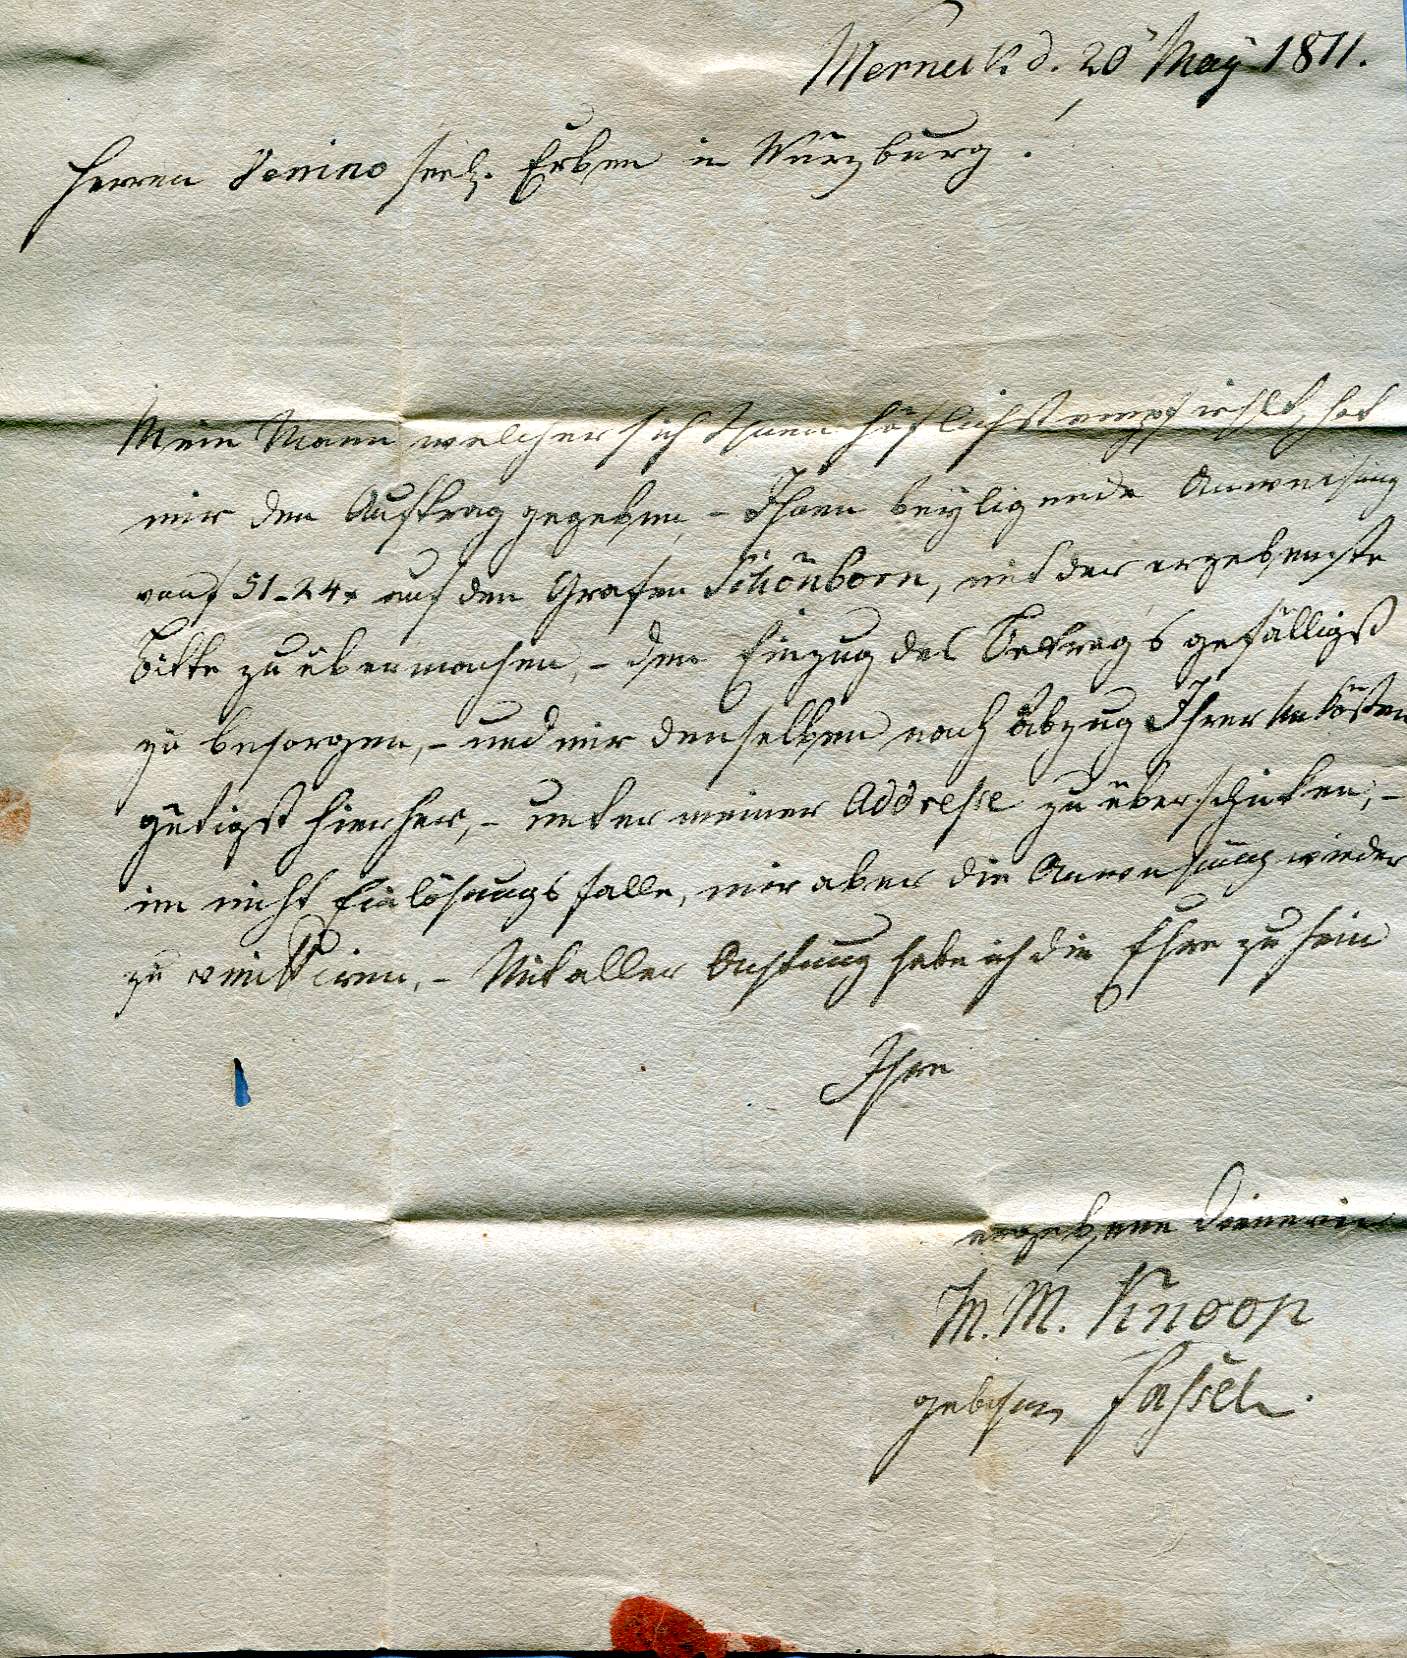 Werneck d. 20 May 1811.
Herren Venino seel. Erben in Würzburg!
Mein Mann welcher sich Ihnen höflichst empfiehlt, hat
mir den Auftrag gegeben, – Ihnen beyligende Anweisung
von f 51-24x auf den Grafen Schönborn, mit der ergebenste
Bitte zu übermachen, – den Einzug des Betrags gefälligst
zu besorgen, – und mir denselben nach Abzug Ihrer Unkösten
gütigst hierher, – unter meiner Addresse zu überschicken, –
im nicht Einlösungs falle, mir aber die Anweisung wieder
zu remittiren, – Mit aller Achtung habe ich die Ehre zu sein
Ihre
ergebene Dienerin
M. M. Knoop
gebohrne